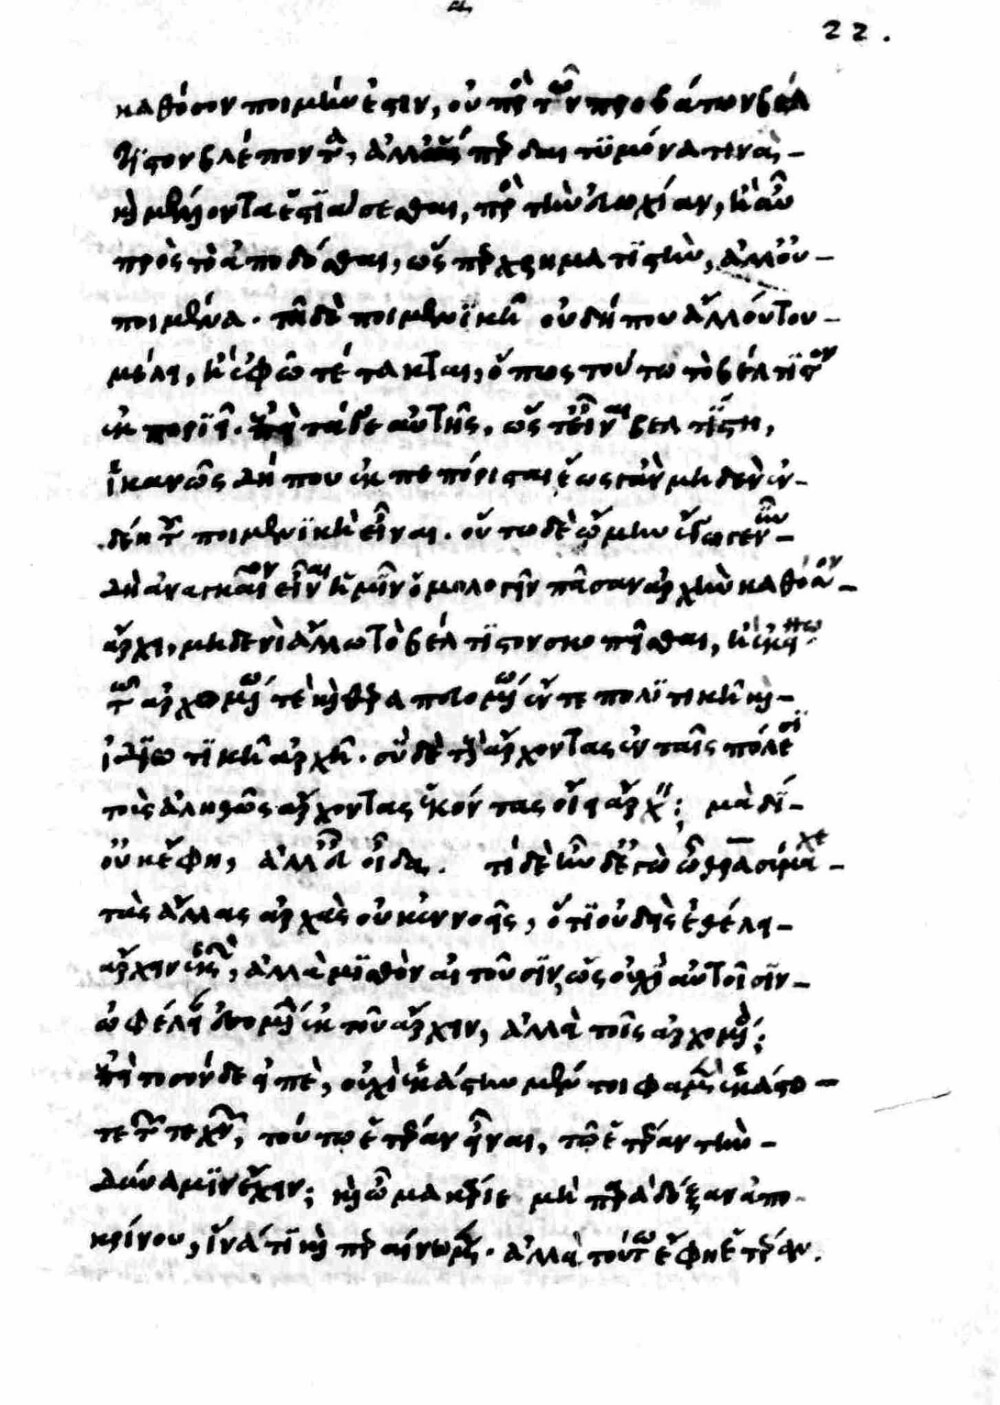 22.
καθόσον ποιμήν ἐστιν, οὐ πρὸς τὸ τῶν προβάτων βέλ
τιστον βλέποντα, ἀλλ' ὥσπερ δαιτυμόνα τινὰ
καὶ μέλλοντα ἑστιάσεσθαι, πρὸς τὴν εὐωχίαν, ἢ αὖ
πρὸς τὸ ἀποδόσθαι, ὥσπερ χρηματιστὴν, ἀλλ' οὐ
ποιμένα. τῇ δὲ ποιμενικῇ οὐ δήπου ἄλλου του
μέλει, ἢ ἐφ' ᾧ τέτακται, ὅπως τούτῳ τὸ βέλτιστον
ἐκποριεῖ. ἐπεὶ τά γε αὐτῆς, ὥστ' εἶναι βελτίστη,
ἱκανῶς δήπου ἐκπεπόρισται ἕως γ' ἂν μηδὲν ἐν
δέῃ τοῦ ποιμενικὴ εἶναι. οὕτω δὲ ᾤμην ἔγωγε νῦν
δὴ ἀναγκαῖον εἶναι ἡμῖν ὁμολογεῖν πᾶσαν ἀρχὴν καθόσον
ἀρχὴ, μηδενὶ ἄλλῳ τὸ βέλτιστον σκοπεῖσθαι, ἢ ἐκείνῳ
τῷ ἀρχομένῳ τε καὶ θεραπευομένῳ ἔν τε πολιτικῇ καὶ
ἰδιωτικῇ ἀρχῇ. σὺ δὲ τοὺς ἄρχοντας ἐν ταῖς πόλεσι
τοὺς ἀληθῶς ἄρχοντας ἑκόντας οἴει ἄρχειν; μὰ δί
οὐκ ἔφη, ἀλλ' εὖ οἶδα. τί δὲ ἦν δ' ἐγὼ ὦ θρασύμαχε
τὰς ἄλλας ἀρχὰς οὐκ ἐννοεῖς, ὅτι οὐδεὶς ἐθέλει
ἄρχειν ἑκὼν, ἀλλὰ μισθὸν αἰτοῦσιν, ὡς οὐχὶ αὐτοῖσιν
ὠφέλειαν ἐσομένην ἐκ τοῦ ἄρχειν, ἀλλὰ τοῖς ἀρχομένοις;
ἐπεὶ τοσόνδε εἰπὲ, οὐχὶ ἑκάστην μέντοι φαμὲν ἑκάστο
τε τῶν τεχνῶν, τούτῳ ἑτέραν εἶναι, τῷ ἑτέραν τὴν
δύναμιν ἔχειν; καὶ ὦ μακάριε μὴ παρὰ δόξαν ἀπο
κρίνου, ἵνα τι καὶ περαίνωμεν. ἀλλὰ τούτῳ ἔφη ἑτέραν.